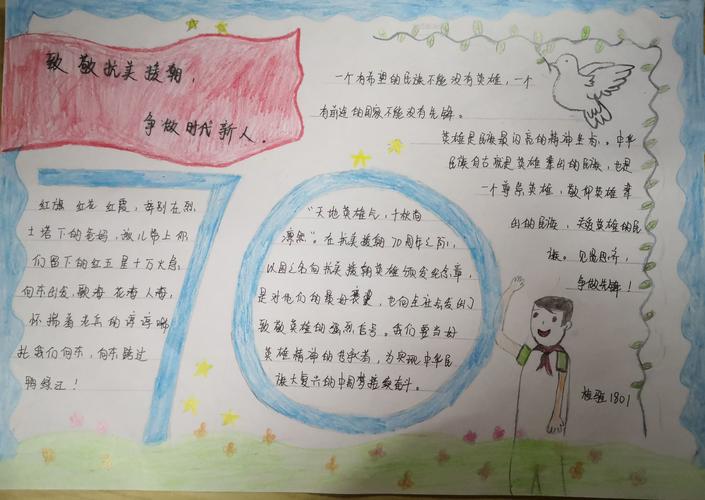 致敬抗美援朝，
争做时代新人。
一个有希望的民族不能没有英雄，一个
有前途的国家不能没有先锋。
英雄是民族最闪亮的精神坐标。中华
民族自古就是英雄辈出的民族，也是
一个尊崇英雄，敬仰英雄辈
出的民族，英雄的民
族。见贤思齐，
争做先锋！
70
红旗 红花 红霞，告别在烈
士塔下的爸妈，孩儿带上你
们留下的红五星十万火急，
向东出发，歌海 花海 人海，
怀揣着老兵的谆谆嘱
托我们向东，向东跨过
鸭绿江！
"天地英雄气，千秋尚
凛然"。在抗美援朝70周年之际，
以国之名向抗美援朝英雄颁发纪念章，
是对他们的最好褒奖，也向全社会发出了
致敬英雄的强烈信号。我们要当好
英雄精神的传承者，为实现中华民
族大复兴的中国梦接续奋斗。
检验1801